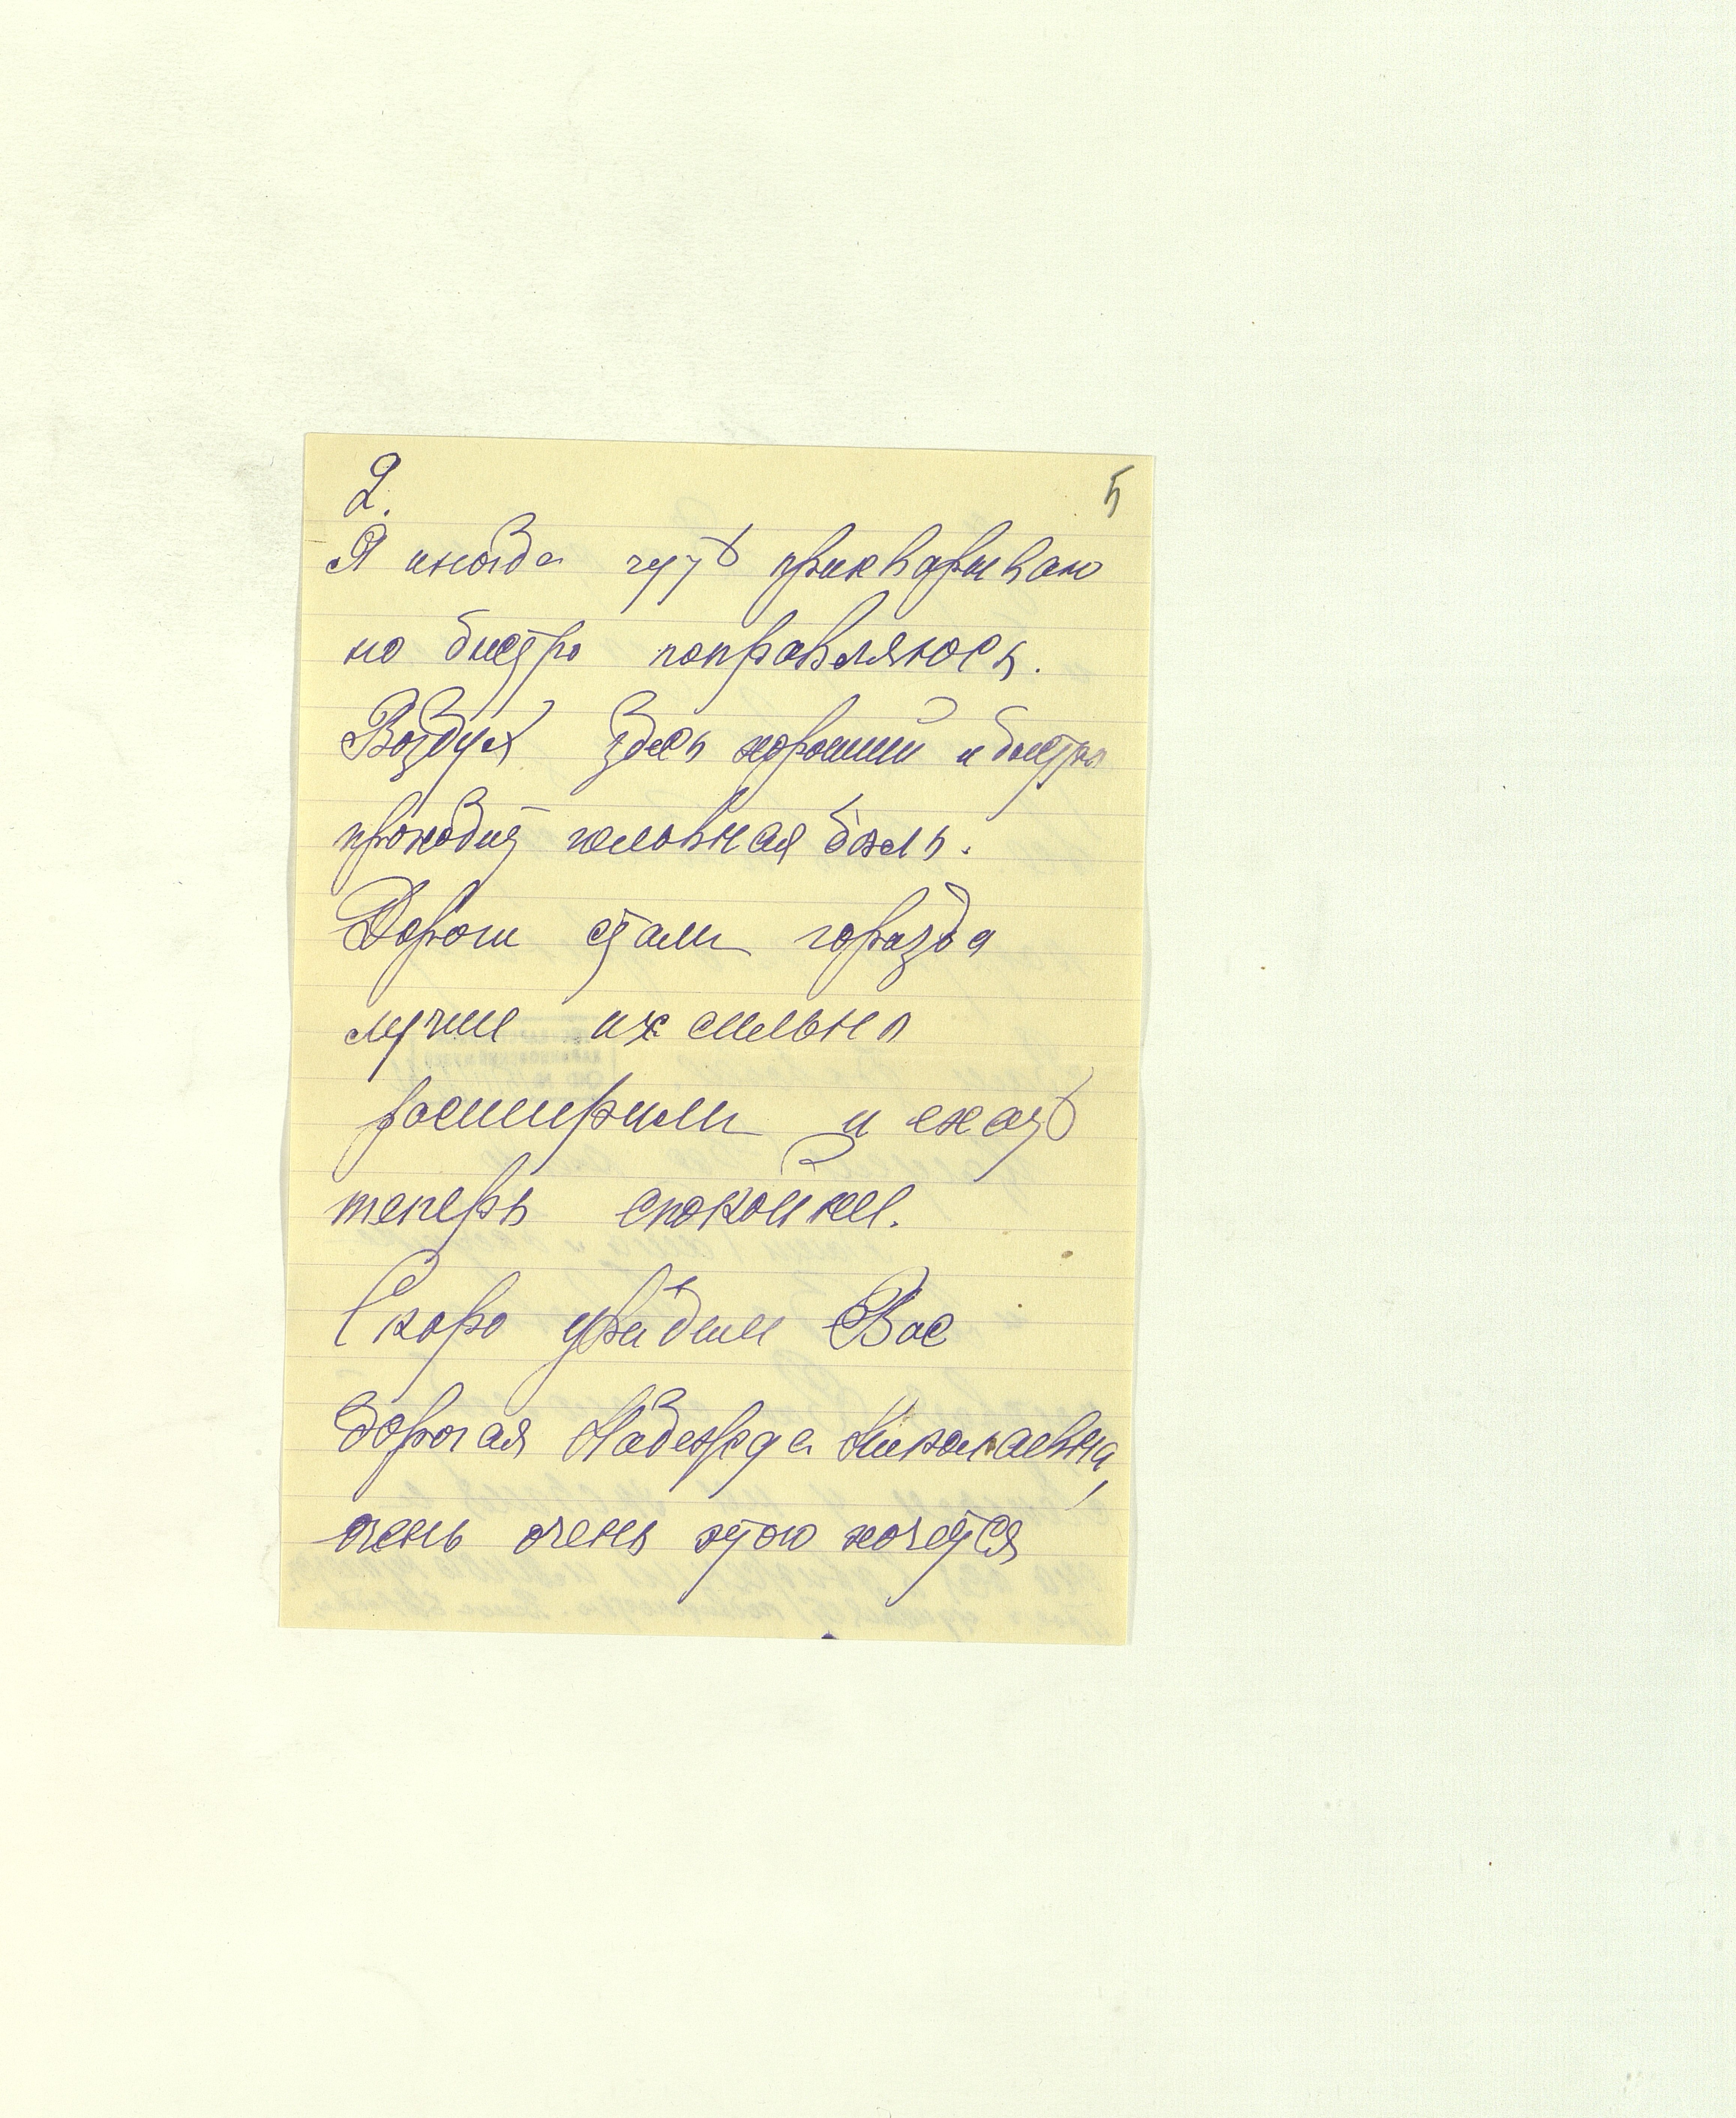 2.
5
Я иногда чуть прихварываю
но быстро поправляюсь.
Воздух здесь хороший и быстро
проходит головная боль.
Дороги стали горазда
лучше их сильно
расширили и ехать
теперь спокойнее.
Скоро увидим Вас
дорогая Надежда Николаевна,
очень очень этого хочется